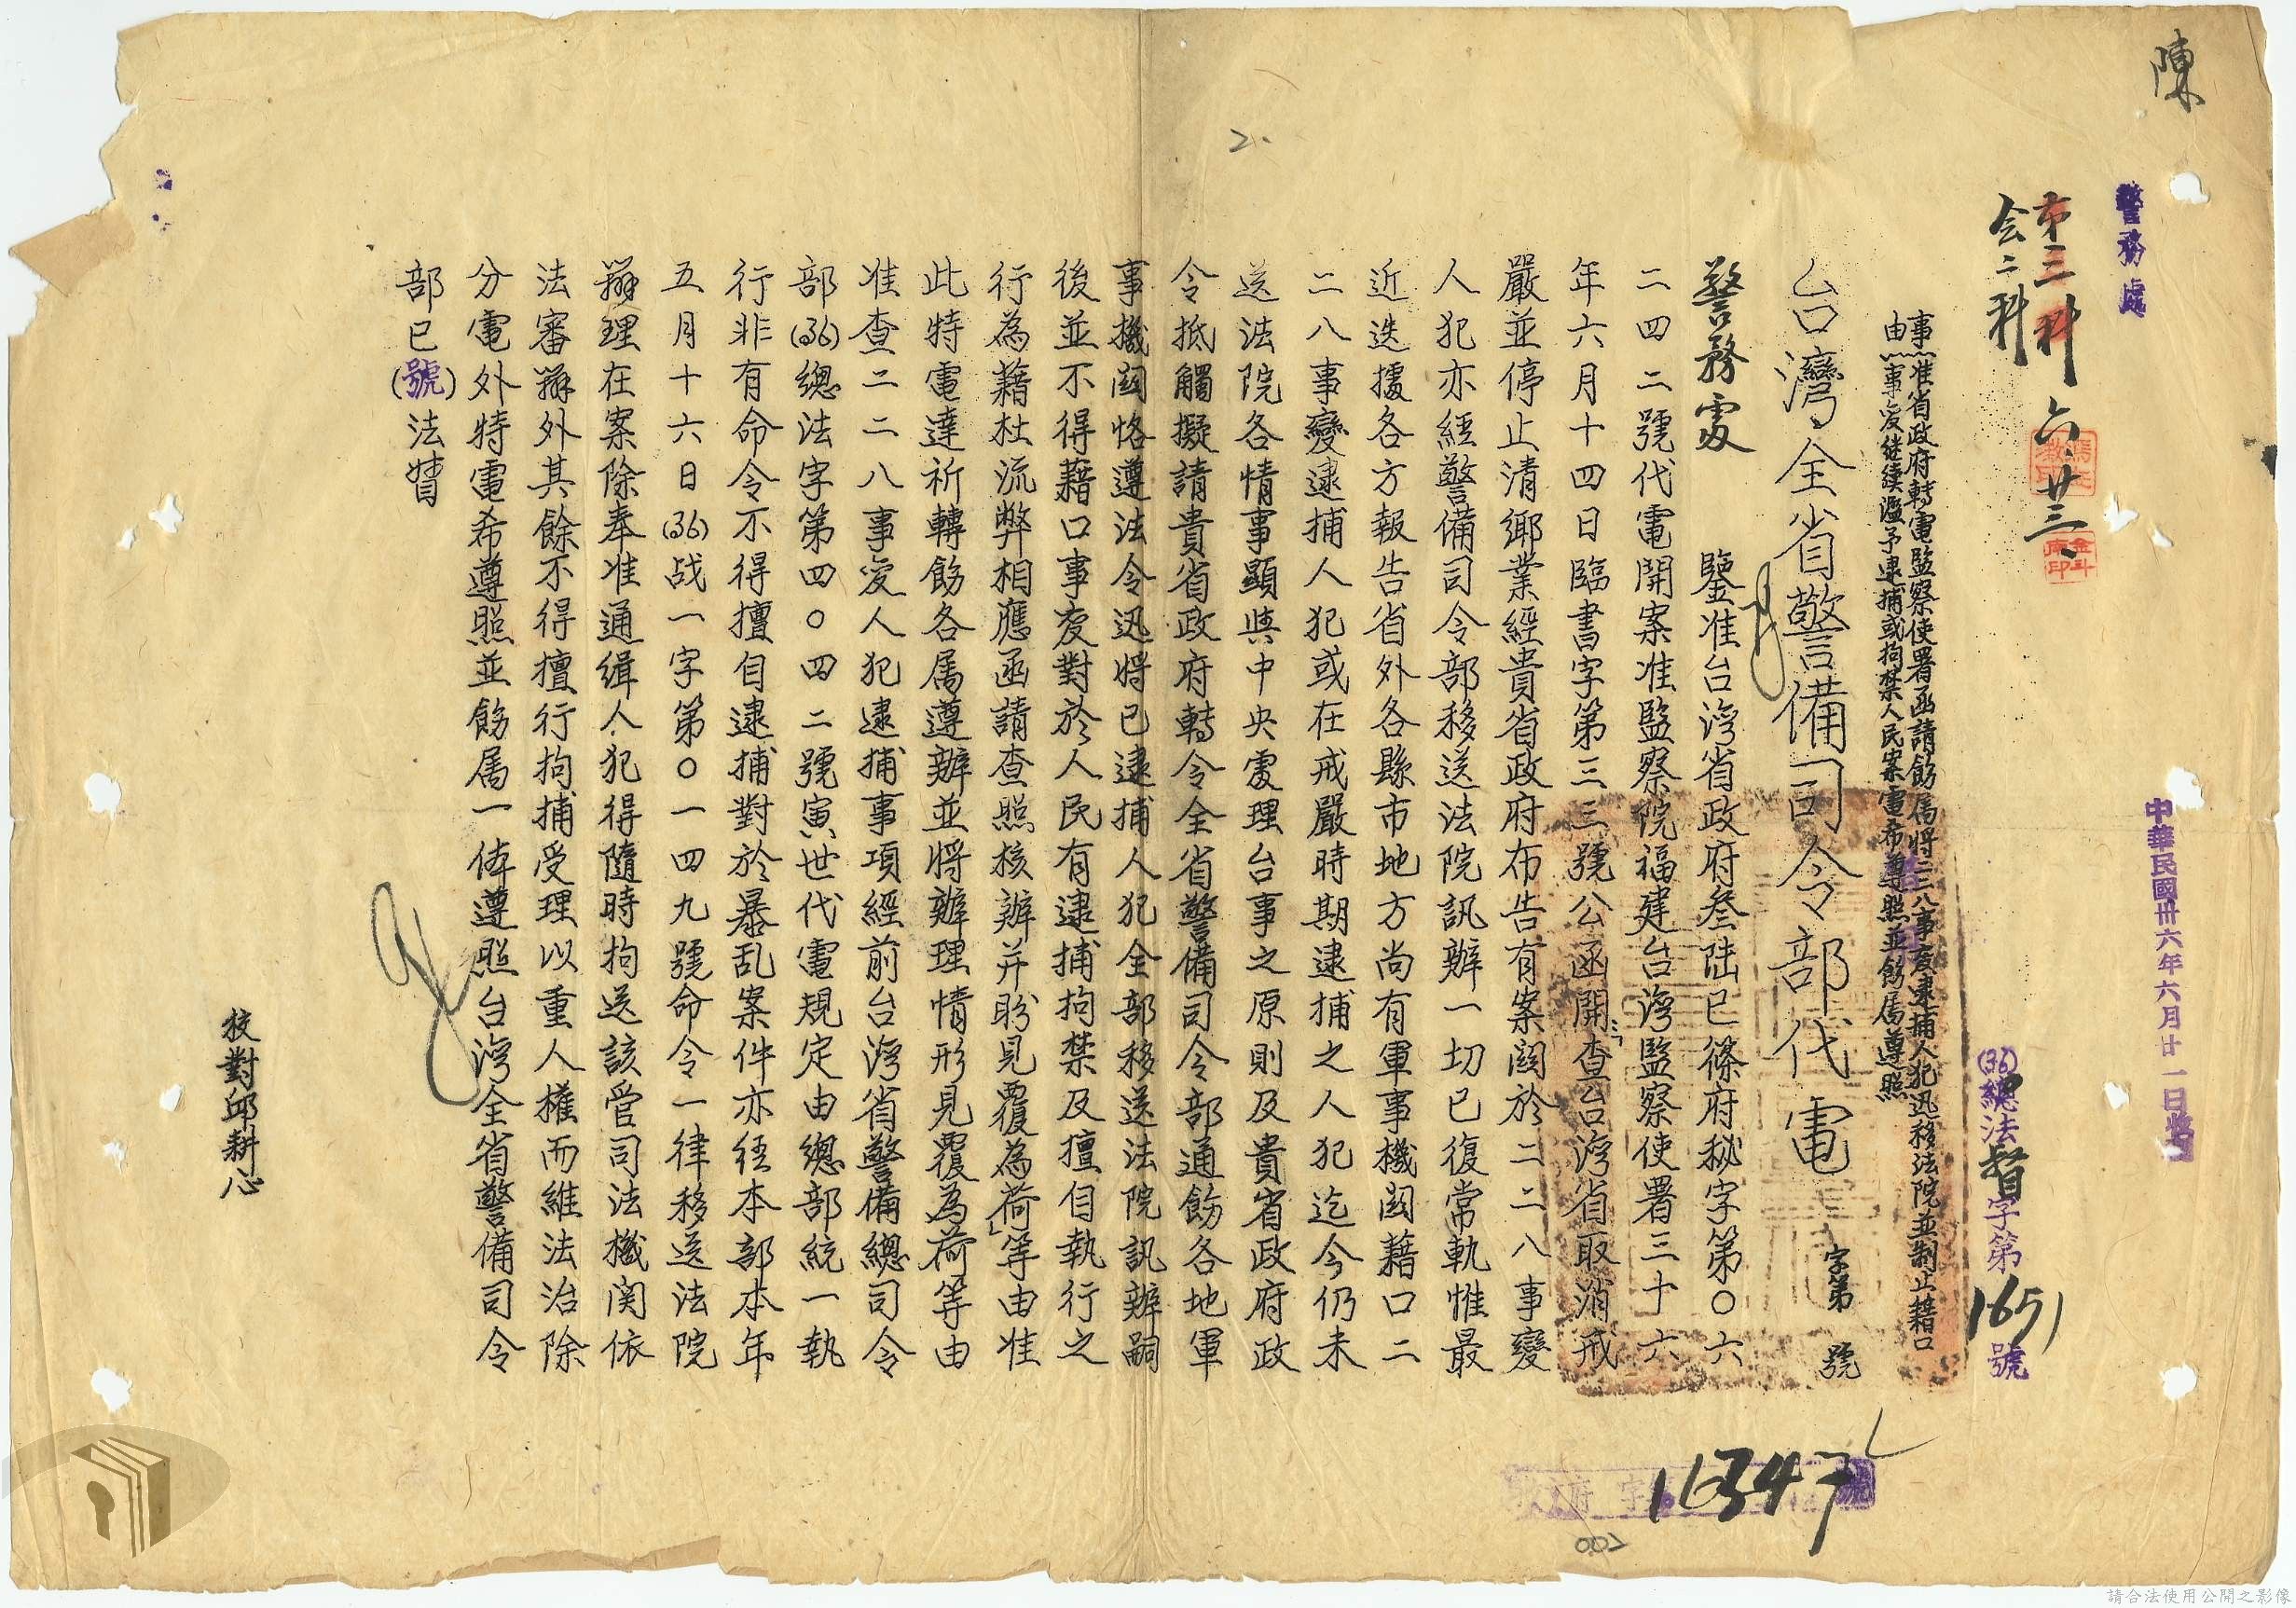 陳
警務處
中華民國卅六年六月廿一日收
第三科 六 廿三
会二科
(36)總法督字第1651號
事由 准省政府轉電監察使署函請飭屬將二二八事変逮捕人犯迅移法院並制止藉口
事変继续濫予逮捕或拘禁人民案電希遵照並飭属遵照
台灣全省警備司令部代電 字第 號
警務處 鑒准台湾省政府叁陆巳篠府秘字第〇六
二四二號代電開案准監察院福建台湾監察使署三十六
年六月十四日臨書字第三三號公函開查台湾省取消戒
嚴並停止清鄉業經貴省政府布告有案関於二二八事變
人犯亦經警備司令部移送法院訊辦一切已復常軌惟最
近迭據各方報告省外各縣市地方尚有軍事機関藉口二
二八事變逮捕人犯或在戒嚴時期逮捕之人犯迄今仍未
送法院各情事顯與中央處理台事之原則及貴省政府政
令抵觸擬請貴省政府轉令全省警備司令部通飭各地軍
事機関恪遵法令迅將已逮捕人犯全部移送法院訊辦嗣
後並不得藉口事変對於人民有逮捕拘禁及擅自執行之
行為藉杜流弊相應函請查照核辦并盼見覆為荷」等由准
此特電達祈轉飭各属遵辦並將辦理情形見覆為荷等由
准查二二八事変人犯逮捕事項經前台湾省警備總司令
部(36)總法字第四〇四二號寅世代電規定由總部統一執
行非有命令不得擅自逮捕對於暴乱案件亦经本部本年
五月十六日(36)战一字第〇一四九號命令一律移送法院
辦理在案除奉准通缉人犯得隨時拘送該管司法機関依
法審辦外其餘不得擅行拘捕受理以重人權而維法治除
分電外特電希遵照並飭属一体遵照台湾全省警備司令
部巳(號)法督
校對邱耕心
16347
號
2.
002
請合法使用公開之影像